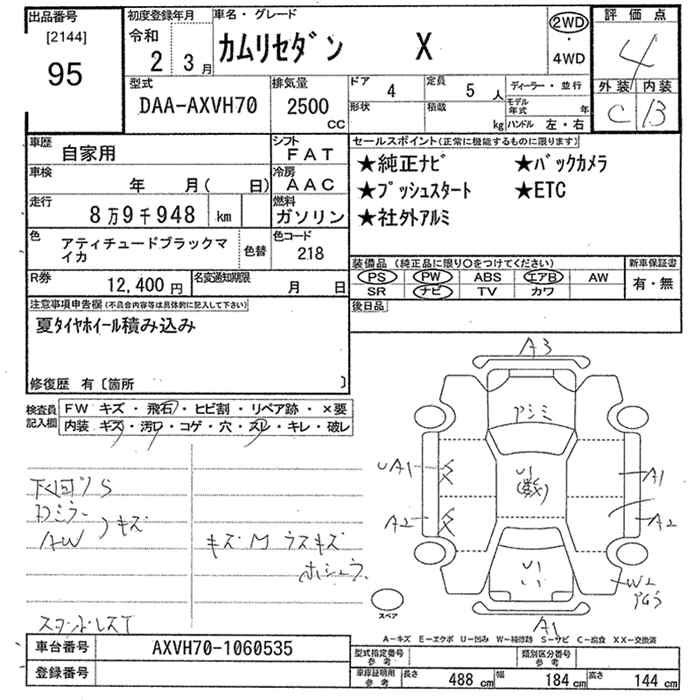 出品番号
[2144]
95
初度登録年月
令和
2 3月
車名・グレード
カムリセダン X
2WD
・
4WD
評価点
4
外装 内装
C B
型式
DAA-AXVH70
排気量
2500
CC
ドア 4
定員 5人
ディーラー・並行
形状
積載 kg
モデル年式 年
ハンドル 左・右
車歴
自家用
シフト
FAT
車検
年 月( 日)
冷房
AAC
走行
8万9千948 km
燃料
ガソリン
色
アティチュードブラックマイカ
色替
色コード
218
R券
12,400円
名変通知期限
月 日
セールスポイント(正常に機能するものに限ります)
★純正ナビ ★バックカメラ
★プッシュスタート ★ETC
★社外アルミ
装備品(純正品に限り○をつけてください)
PS PW ABS エアB AW
SR ナビ TV カワ
新車保証書
有・無
後日品
注意事項申告欄(不具合内容等は具体的に記入して下さい)
夏タイヤホイール積み込み
修復歴 有〔箇所 〕
検査員記入欄
FW キズ・飛石・ヒビ割・リペア跡・×要
内装 キズ・汚れ・コゲ・穴・スレ・キレ・破レ
下回りS
Dミラー
AW
キズ
キズM ウスキズ
スタンドレスT
A3
UA1
A2
A1
A2
W2
A1
スペア
A-キズ E-エクボ U-凹み W-補修跡 S-サビ C-腐食 XX-交換済
車台番号
AXVH70-1060535
登録番号
型式指定番号
参考
類別区分番号
参考
車庫証明用
参考
長さ 488cm 幅 184cm 高さ 144cm